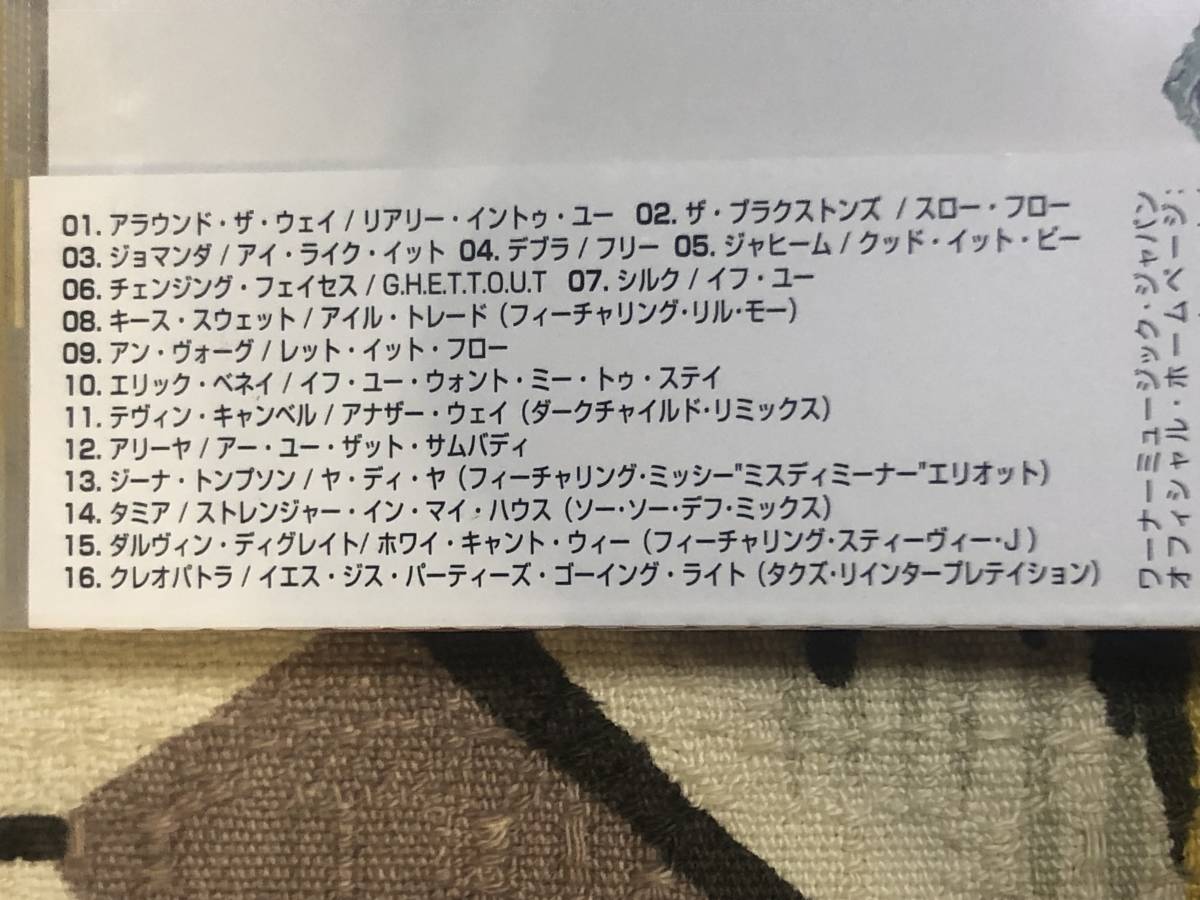 01. アラウンド・ザ・ウェイ / リアリー・イントゥ・ユー 02. ザ・ブラクストンズ / スロー・フロー
03. ジョマンダ / アイ・ライク・イット 04. デブラ / フリー 05. ジャヒーム / クッド・イット・ビー
06. チェンジング・フェイセス / G.H.E.T.T.O.U.T 07. シルク / イフ・ユー
08. キース・スウェット / アイル・トレード (フィーチャリング・リル・モー)
09. アン・ヴォーグ / レット・イット・フロー
10. エリック・ベネイ / イフ・ユー・ウォント・ミー・トゥ・ステイ
11. テヴィン・キャンベル / アナザー・ウェイ (ダークチャイルド・リミックス)
12. アリーヤ / アー・ユー・ザット・サムバディ
13. ジーナ・トンプソン / ヤ・ディ・ヤ (フィーチャリング・ミッシー"ミスディミーナー"エリオット)
14. タミア / ストレンジャー・イン・マイ・ハウス (ソー・ソー・デフ・ミックス)
15. ダルヴィン・ディグレイト/ ホワイ・キャント・ウィー (フィーチャリング・スティーヴィー・J )
16. クレオパトラ / イエス・ジス・パーティーズ・ゴーイング・ライト (タクズ・リインタープレテイション)
ワーナーミュージック・ジャパン
オフィシャル・ホームページ: